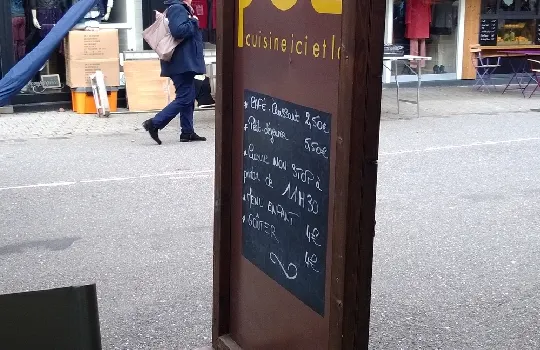 cuisine ici et l
* CAFÉ. CROISSANT 2,50€
* Petit-déjeuner 5,50€
* CUISINE NON STOP à
partir de 11H30
* MENU ENFANT 4€
* GOÛTER 4€